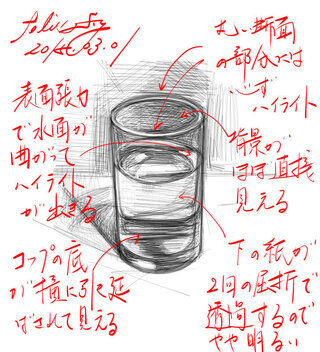 20
03.01
丸い断面
の部分には
必ず
ハイライト
表面張力
で水面が
曲がって
ハイライト
が出きる
背景が
ほぼ直接
見える
コップの底
が横に引き延
ばされて見える
下の紙が
2回の屈折で
透過するので
やや明るい